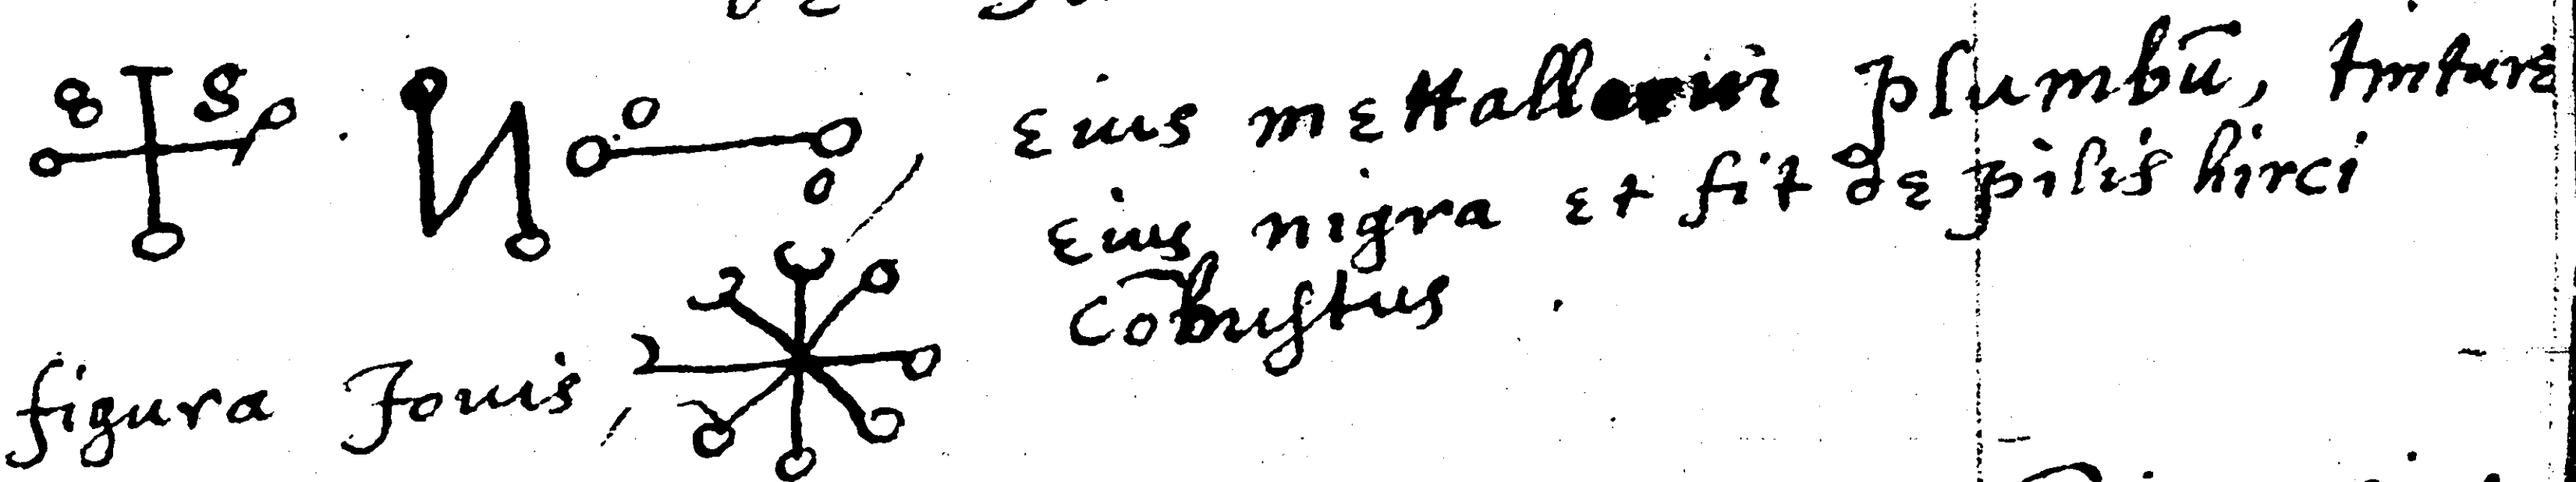 Eius mettallum plumbū, tinture
eius nigra et fit de pilis hirci
cōbustus .
figura Jouis,